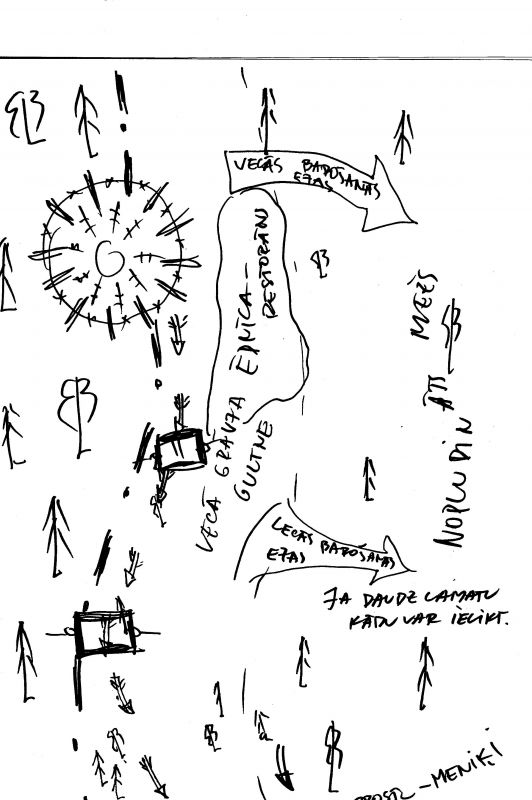 VECĀS BAROŠANAS
EJAS
G
ĒDNĪCA –
RESTORĀNS
MEŽS
NOPLUDINĀTS
VECĀ GRAVJA
GULTNE
VECAS BAROŠANAS
EJAS
JA DAUDZ LAMATU
KĀDU VAR IELIKT.
– MENIĶI